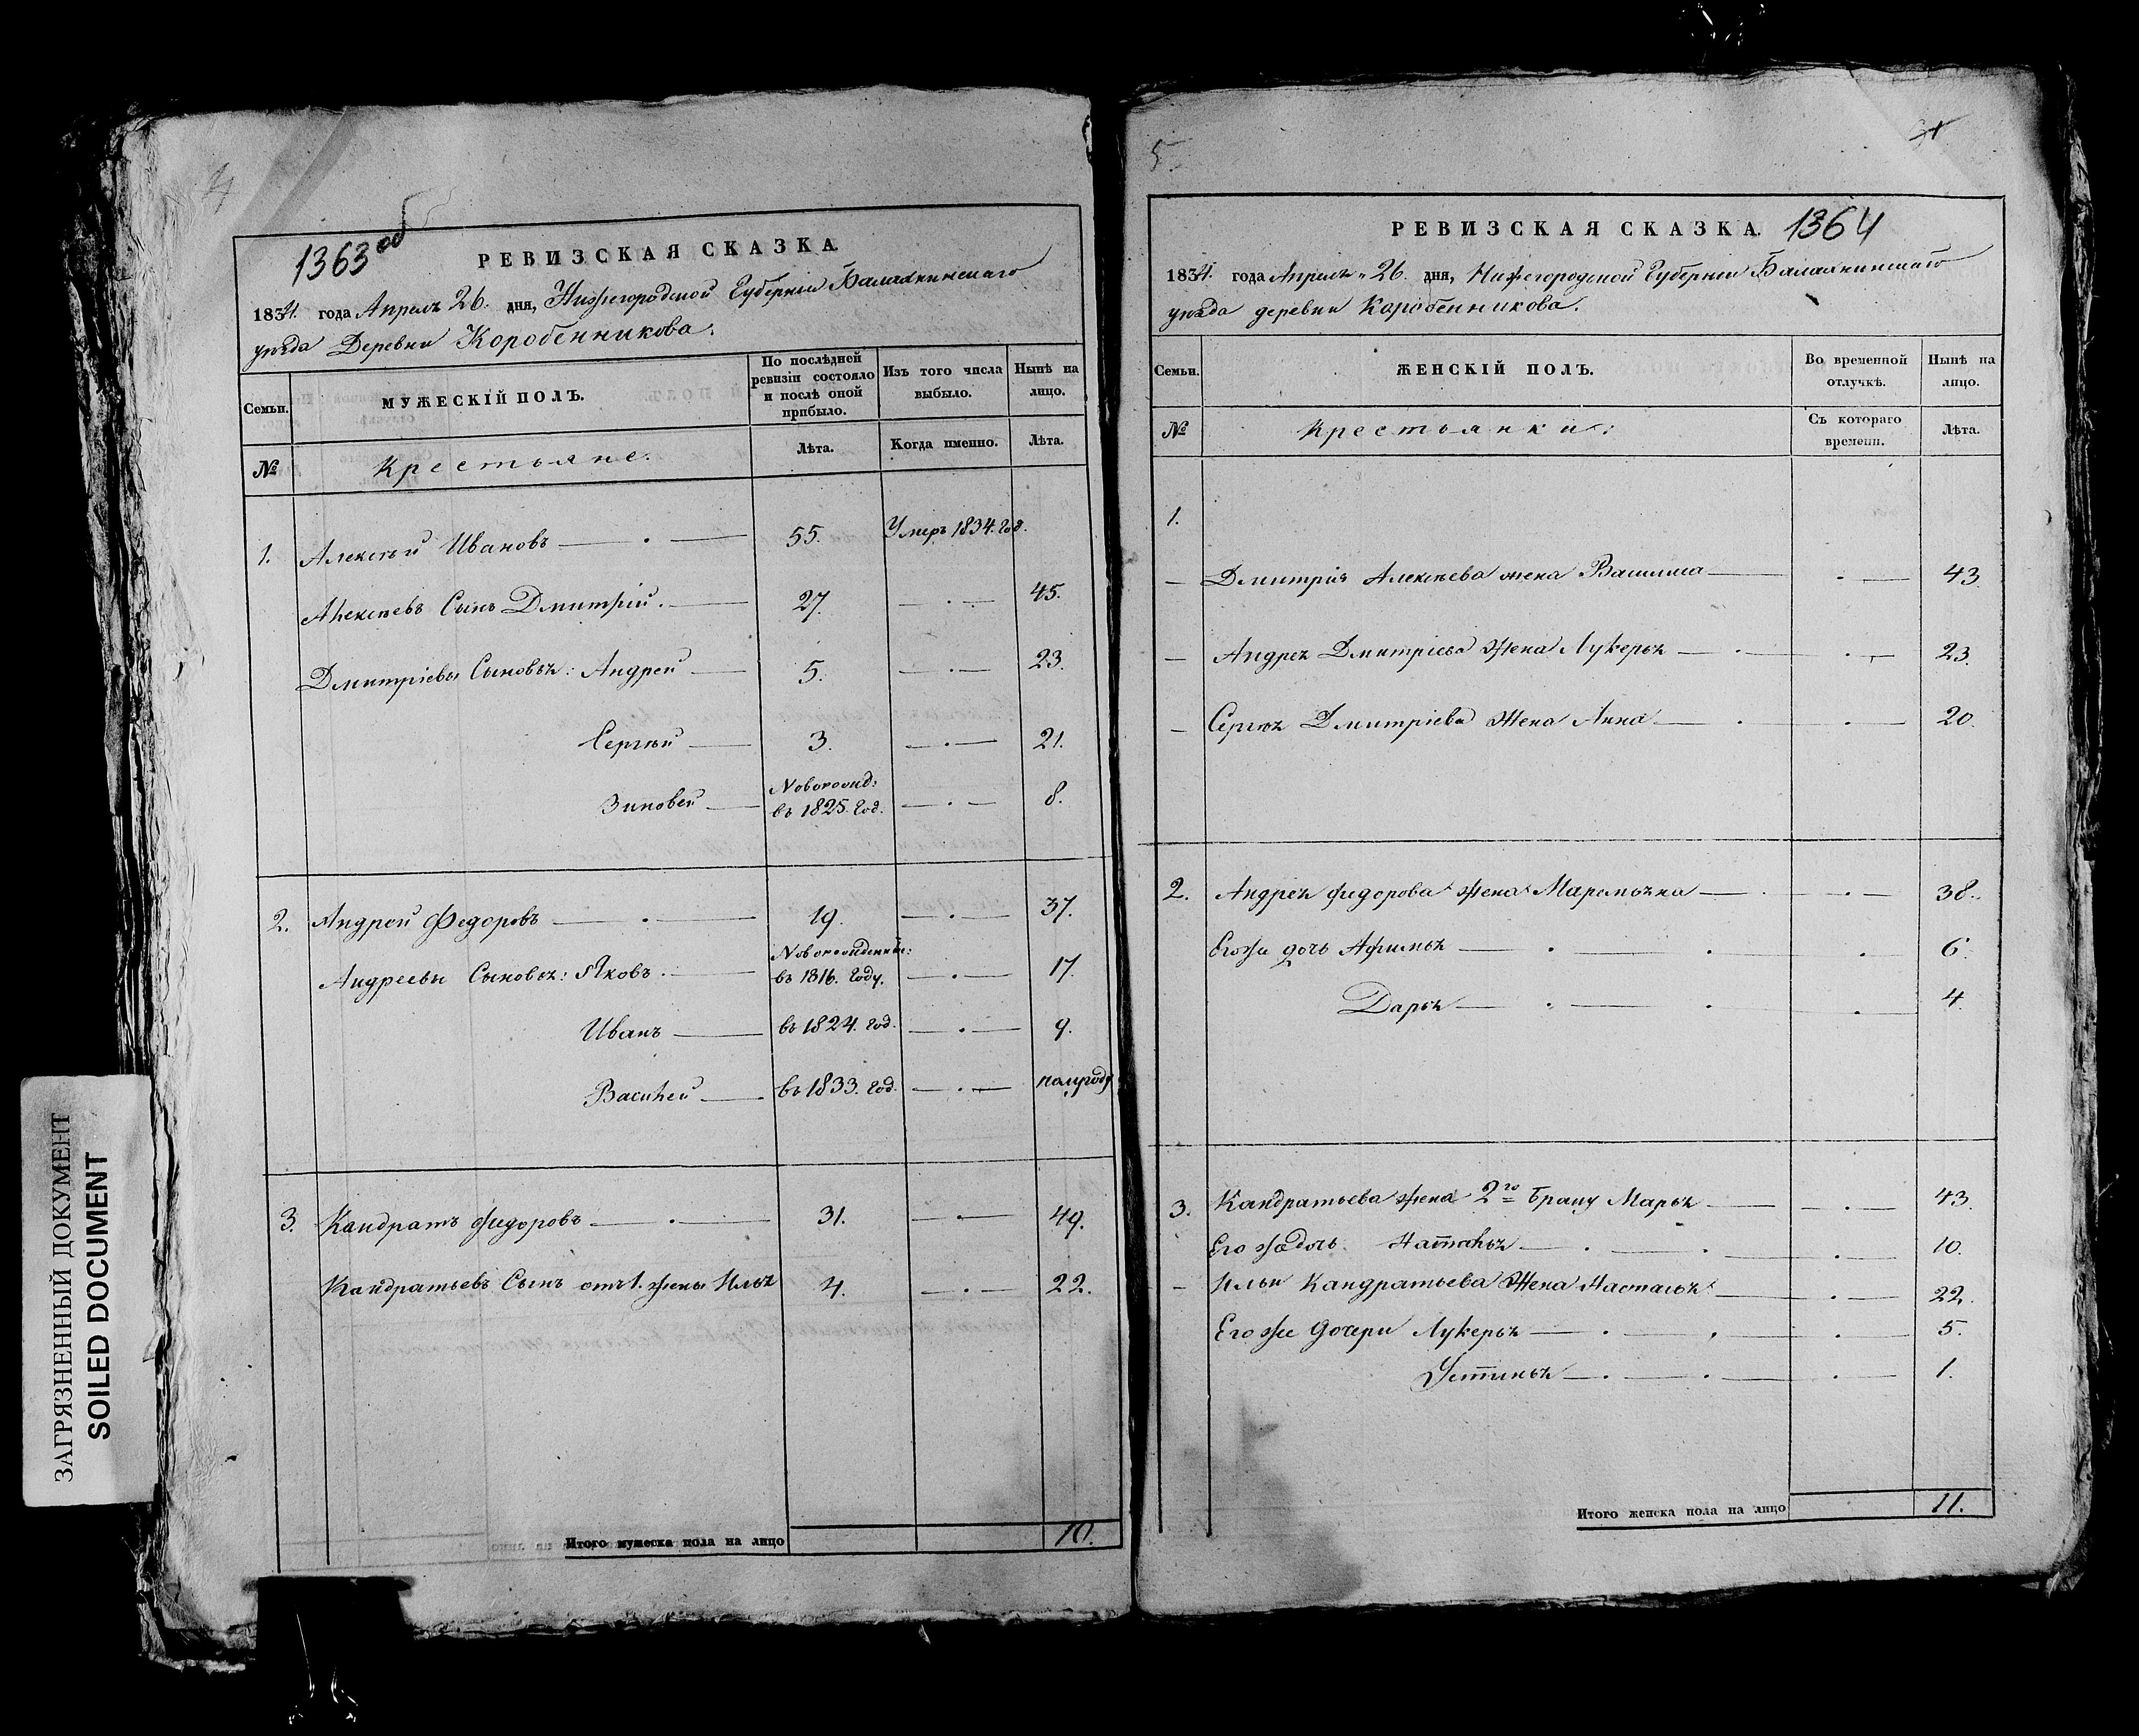 ЗАГРЯЗНЕННЫЙ ДОКУМЕНТ
SOILED DOCUMENT
4
1363 об
РЕВИЗСКАЯ СКАЗКА.
1834. года Апрель 26. дня, Нижегородской Губернии Балахнинскаго
уѣзда Деревни Коробенникова.
Семьи.
МУЖЕСКІЙ ПОЛЪ.
По послѣдней ревизіи состояло и послѣ оной прибыло.
Изъ того числа выбыло.
Нынѣ на лицо.
№
Крестьяне.
Лѣта.
Когда именно.
Лѣта.
1. Алексѣй Ивановъ — 55. Умеръ 1834. год.
Алексѣевъ Сынъ Дмитрій. — 27. — 45.
Дмитріевы Сыновья: Андрей — 5. — 23.
Сергѣй — 3. — 21.
Зиновей — Новорожд: въ 1825. год. — 8.
2. Андрей Федоровъ — 19. — 37.
Андреевы Сыновья: Яковъ. — Новорожденные: въ 1816. году. — 17.
Иванъ — въ 1824. год. — 9.
Василей — въ 1833. год. — полугоду
3. Кандратъ Федоровъ — 31. — 49.
Кандратьевъ Сынъ отъ 1. жены Илья 4. — 22.
Итого мужеска пола на лицо 10.
5.
31
РЕВИЗСКАЯ СКАЗКА. 1364
1834. года Апрель 26. дня, Нижегородской Губерніи Балахнинскаго
уѣзда деревни Коробенникова.
Семьи.
ЖЕНСКІЙ ПОЛЪ.
Во временной отлучкѣ.
Нынѣ на лицо.
№
Крестьянки:
Съ котораго времени.
Лѣта.
1.
— Дмитрія Алексѣева жена Василиса — 43.
— Андрея Дмитріева Жена Лукерья — 23.
— Сергѣя Дмитріева Жена Анна — 20.
2. Андрея Федорова Жена — 38.
Егоже дочь Афимья — 6.
Дарья — 4.
3. Кандратьева жена 2го браку Марья — 43.
Его же дочь Наталья — 10.
— Ильи Кандратьева Жена Настасья — 22.
Его же дочери Лукерья — 5.
Устинья — 1.
Итого женска пола на лицо 11.